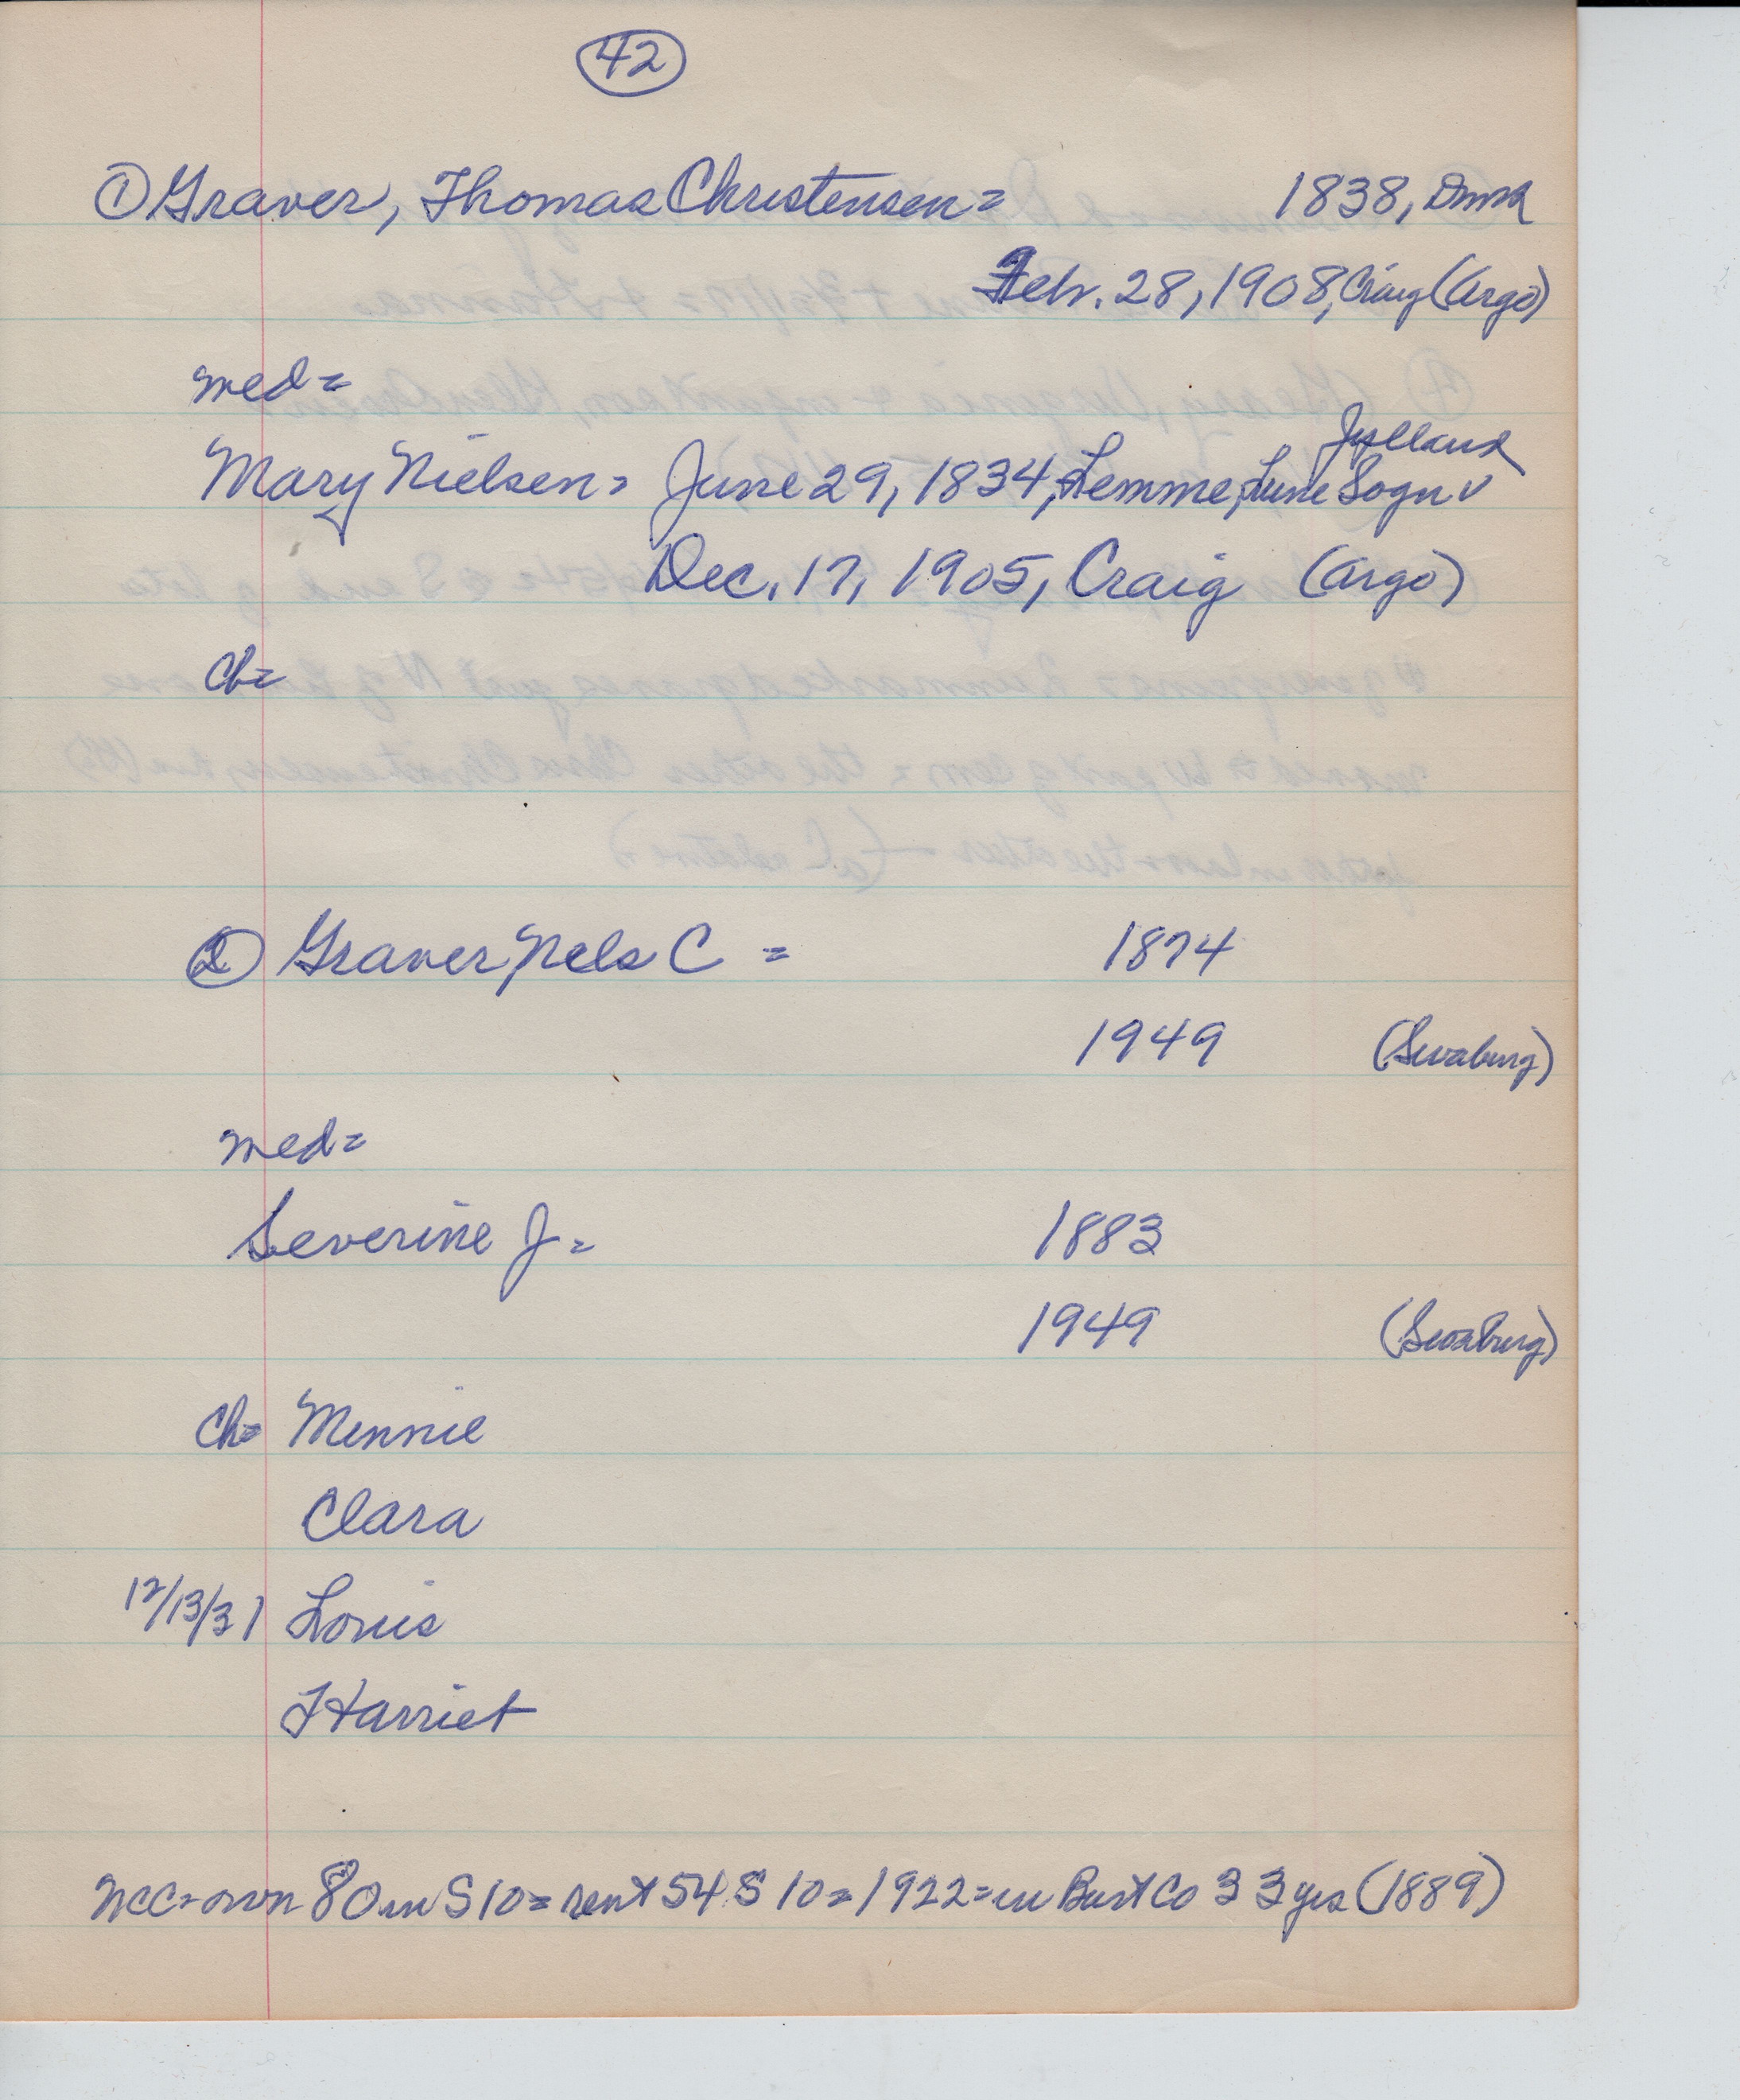 42
① Graver, Thomas Christensen = 1838, Dmk
Feb. 28, 1908, Craig (Argo)
med =
Jylland
Mary Nielsen = June 29, 1834, Lemme, Lune Sogn v
Dec. 17, 1905, Craig (Argo)
ch =
② Graver, Nels C = 1874
1949 (Swaburg)
med =
Severine J = 1883
1949 (Swaburg)
Ch = Minnie
Clara
12/13/31 Louis
Harriet
NCC = own 80 in S 10 = rent 54 S 10 = 1922 = in Burt Co 33 yrs (1889)